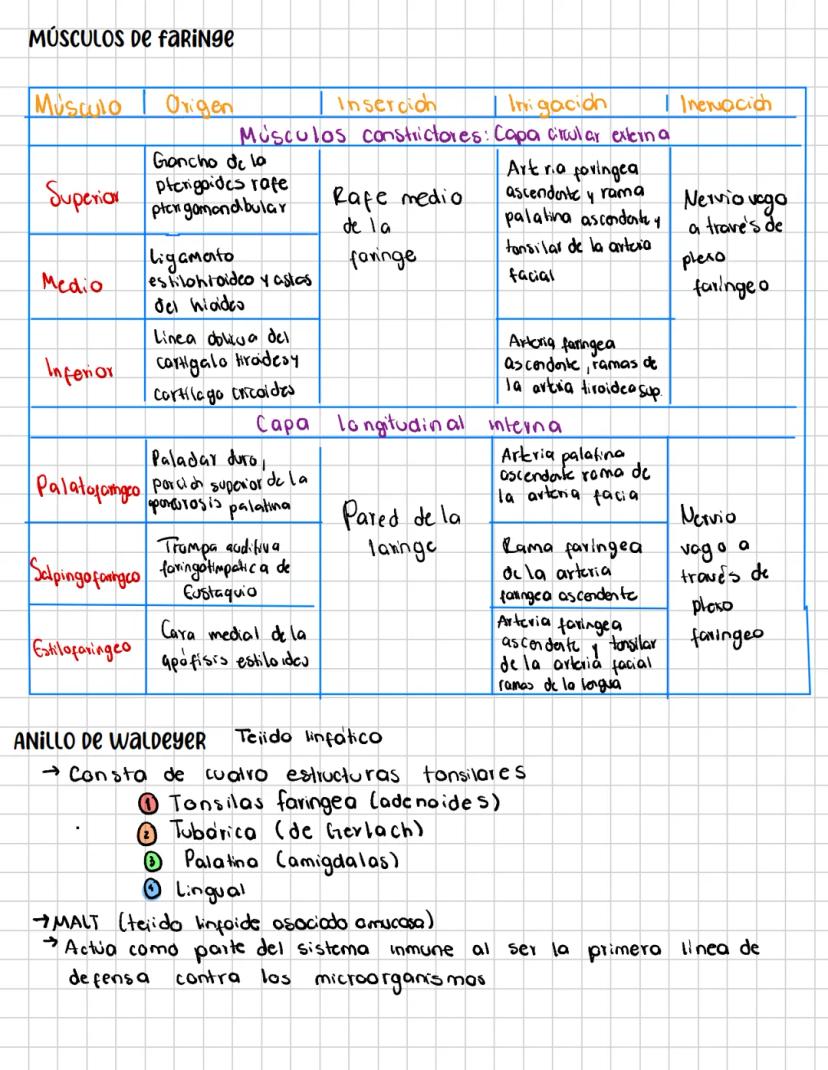 MÚSCULOS DE FARINGE
Músculo Origen Inserción Irrigación Inervación
Músculos constrictores: Capa circular externa
Superior
Gancho de la
pterigoides rafe
pterigomandibular
Rafe medio
de la
faringe
Artria faringea
ascendente y rama
palatina ascendente y
tonsilar de la arteria
facial
Nervio vago
a través de
plexo
faringeo
Medio
Ligamento
estilohioideo y astas
del hioides
Inferior
Linea oblicua del
cartigalo tiroides y
cartílago cricoides
Arteria faringea
ascendente, ramas de
la artria tiroidea sup.
Capa longitudinal interna
Palatofaringeo
Paladar duro,
porción superior de la
aponeurosis palatina
Pared de la
laringe
Arteria palatina
ascendente rama de
la arteria facia
Nervio
vago a
través de
plexo
faringeo
Salpingofaringeo
Trompa auditiva
faringotimpatica de
Eustaquio
Rama faringea
de la arteria
faringea ascendente
Estilofaringeo
Cara medial de la
apófisis estiloides
Arteria faringea
ascendente y tonsilar
de la arteria facial
ramas de la lengua
ANILLO DE WALDEYER Tejido linfático
→ Consta de cuatro estructuras tonsilares
1 Tonsilas faringea (adenoides)
2 Tubárica (de Gerlach)
3 Palatina (amigdalas)
4 Lingual
→ MALT (tejido linfoide asociado a mucosa)
→ Actúa como parte del sistema inmune al ser la primera línea de
defensa contra los microorganismos